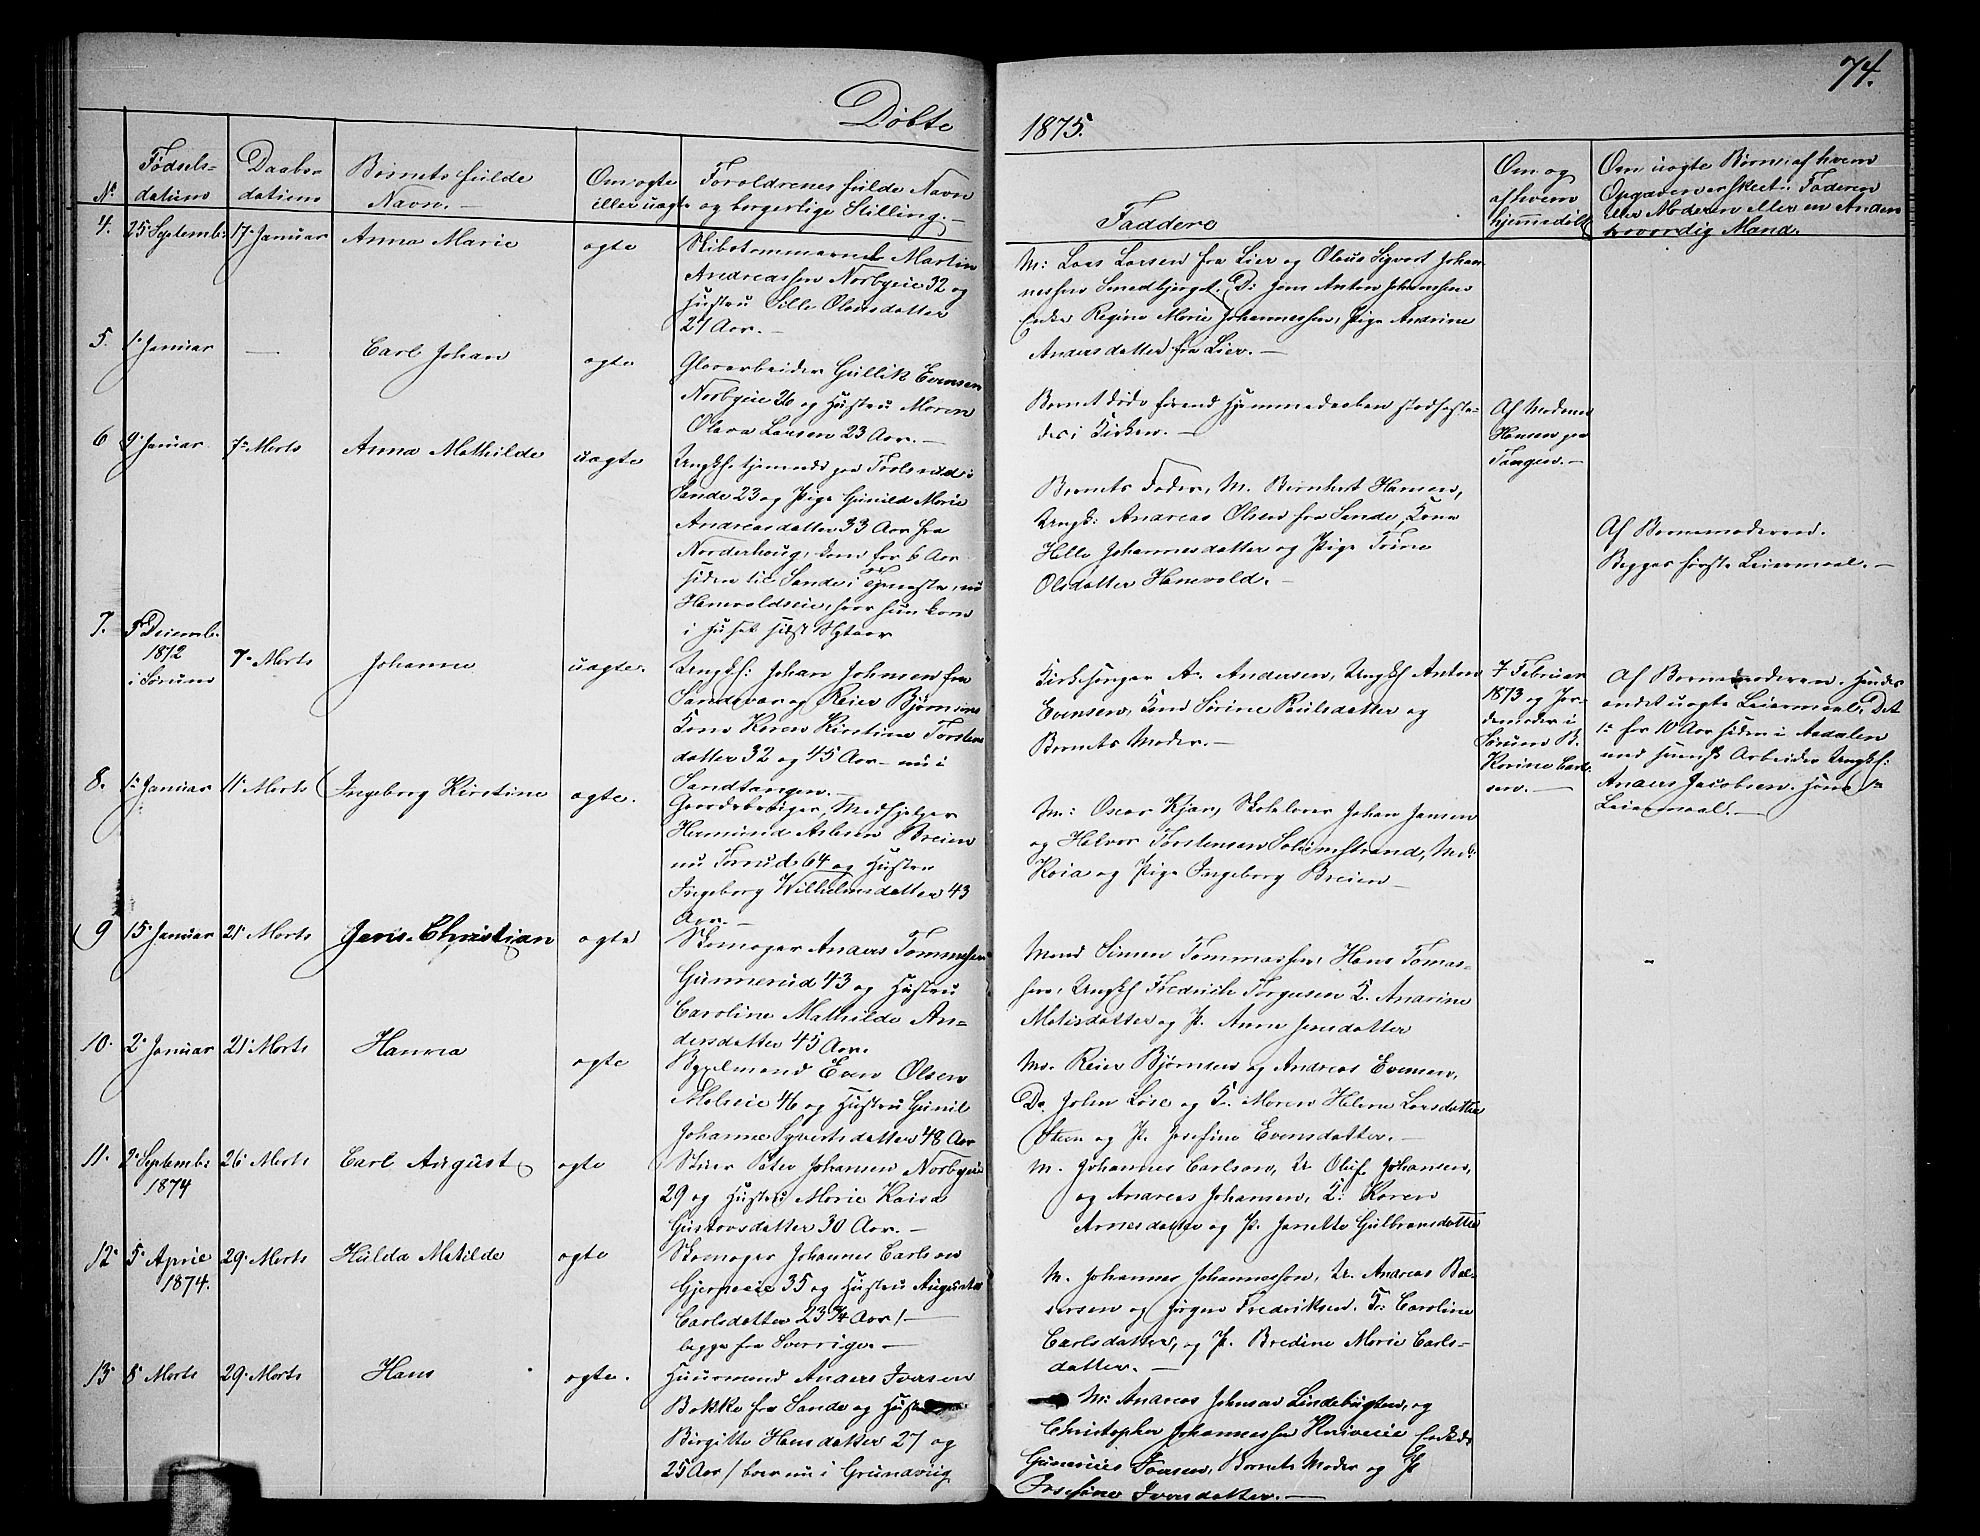 74.
Döbte
1875.
Nº
Fødsels-
datum
Daabs-
datum
Barnets fulde
Navn.
Om ægte
eller uægte
Forældrenes fulde Navn
og borgerlige Stilling.
Faddere
Om og
af hvem
hjemmedöbt
Om uægte Børn: af hvem
Opgaven er skeet: Faderen
eller Moderen eller en Anden
troværdig Mand.
4.
25 Septemb:
17 Januar
Anna Marie
ægte
Skibstømmermd Martin
Andreassen Norbyeie 32 og
Hustru Sille Olausdatter
27 Aar.
M: Lars Larsen fra Lier og Olaus Sigvart Johan
nessen Smedbjerget. D: Jens Anton Johannesen
Enke Regine Marie Johannessen, Pige Andrine
Andersdatter fra Lier.
5.
1 Januar
Carl Johan
ægte
Glasarbeider Gullik Evensen
Norbyeie 26 og Hustru Maren
Olava Larsen 23 Aar.
Barnet døde førend Hjemmedaaben stadfæste-
des i Kirken.
Af Madame
Hansen paa
Tangen.
6
9 Januar
7 Marts
Anna Mathilde
uægte
Ungkf. tjenende paa
Sande 23 og Pige Gunild Marie
Andreasdatter 33 Aar fra
Norderhoug, kom for 6 Aar
siden til Sande i Tjeneste, nu
Hanevoldseie, hvor hun kom
i Huset sidst Nytaar
Barnets Fader, M. Bernhart Hansen,
Ungk: Andreas Olsen fra Sande, Kone
Helle Johannesdatter og Pige Trine
Olsdatter Hanevold.
Af Barnemoderen.
Begges første Leiermaal.
7.
5 Decemb.
1872
i Sørum
7 Marts
Johanne
uægte.
Ungkf: Johan Johnsen fra
Sandsvær og Reier Bjørnsens
Kone Karen Kirstine Torstens
datter 32 og 45 Aar nu i
Sandtangen.
Kirkesanger A. Andersen, Ungkf Anton
Evensen, Kone Sørine Paulsdatter og
Barnets Moder.
7 Februar
1873 og Jor-
demoder i
Sørum B.
Karine Carl
sen.
Af Barnemoderen. Hendes
andet uægte Leiermaal. Det
1 for 10 Aar siden i Aadalen
med svensk Arbeider Ungkf:
Anders Jacobsen. Hans 1
Leiermaal.
8.
1 Januar
11 Marts
Ingeborg Kirstine
ægte.
Gaardbruger, Medhjelper
Hermund Asleson Breien
nu Forrud 64 og Hustru
Ingeborg Wilhelmsdatter 43
Aar.
M: Oscar Kjær, Skolelærer Johan Jansen
og Halvor Torstensen Solumstrand, Md:
Kaia og Pige Ingeborg Breien
9
15 Januar
21 Marts
Jens Christian
ægte
Skomager Anders Tommesen
Gunnerud 43 og Hustru
Caroline Mathilde An-
dersdatter 45 Aar.
Mænd Simen Tommassen, Hans Tomas-
sen, Ungkf Fredrik Torgersen K. Anarine
Matisdatter og P. Anne Jensdatter
10.
2 Januar
21 Marts
Hanna
ægte
Bygselmand Even Olsen
Melseie 46 og Hustru Gunil
Johanne Syvertsdatter 48 Aar
M. Reier Bjørnsen og Andreas Evensen,
Do. John Løse og K. Maren Helene Larsdatter
Steen og P. Josefine Evensdatter.
11.
2 Septemb:
1874
26 Marts
Carl August
ægte
Peter Johansen Norbyeie
29 og Hustru Marie Kaisa
Gustavsdatter 30 Aar.
M. Johannes Carlson, U. Oluf Johansen,
og Anareas Johansen, K: Karen
Arnesdatter og P. Janette Gulbransdatter
12
5 April
1874.
29 Marts
Hulda Matilde
ægte
Skomager Johannes Carlson
Gjerpeeie 35 og Hustru Augusta
Carlsdatter 23 3/4 Aar /
begge fra Sverrige.
M. Johannes Johannessen, U. Andreas
og Jørgen Fredriksen. K: Caroline
Carlsdatter, og P. Bredine Marie Carls-
datter.
13
8 Marts
29 Marts
Hans
ægte.
Huusmand Anders Iversen
Bakke fra Sande og Hustru
Birgitte Hansdatter 27 og
25 Aar / boer nu i Grundvig
M: Andreas Johnsen Lindebugten, og
Christopher Johannessen
Gunerius Iversen, Barnets Moder og P
Josefine Iversdatter.